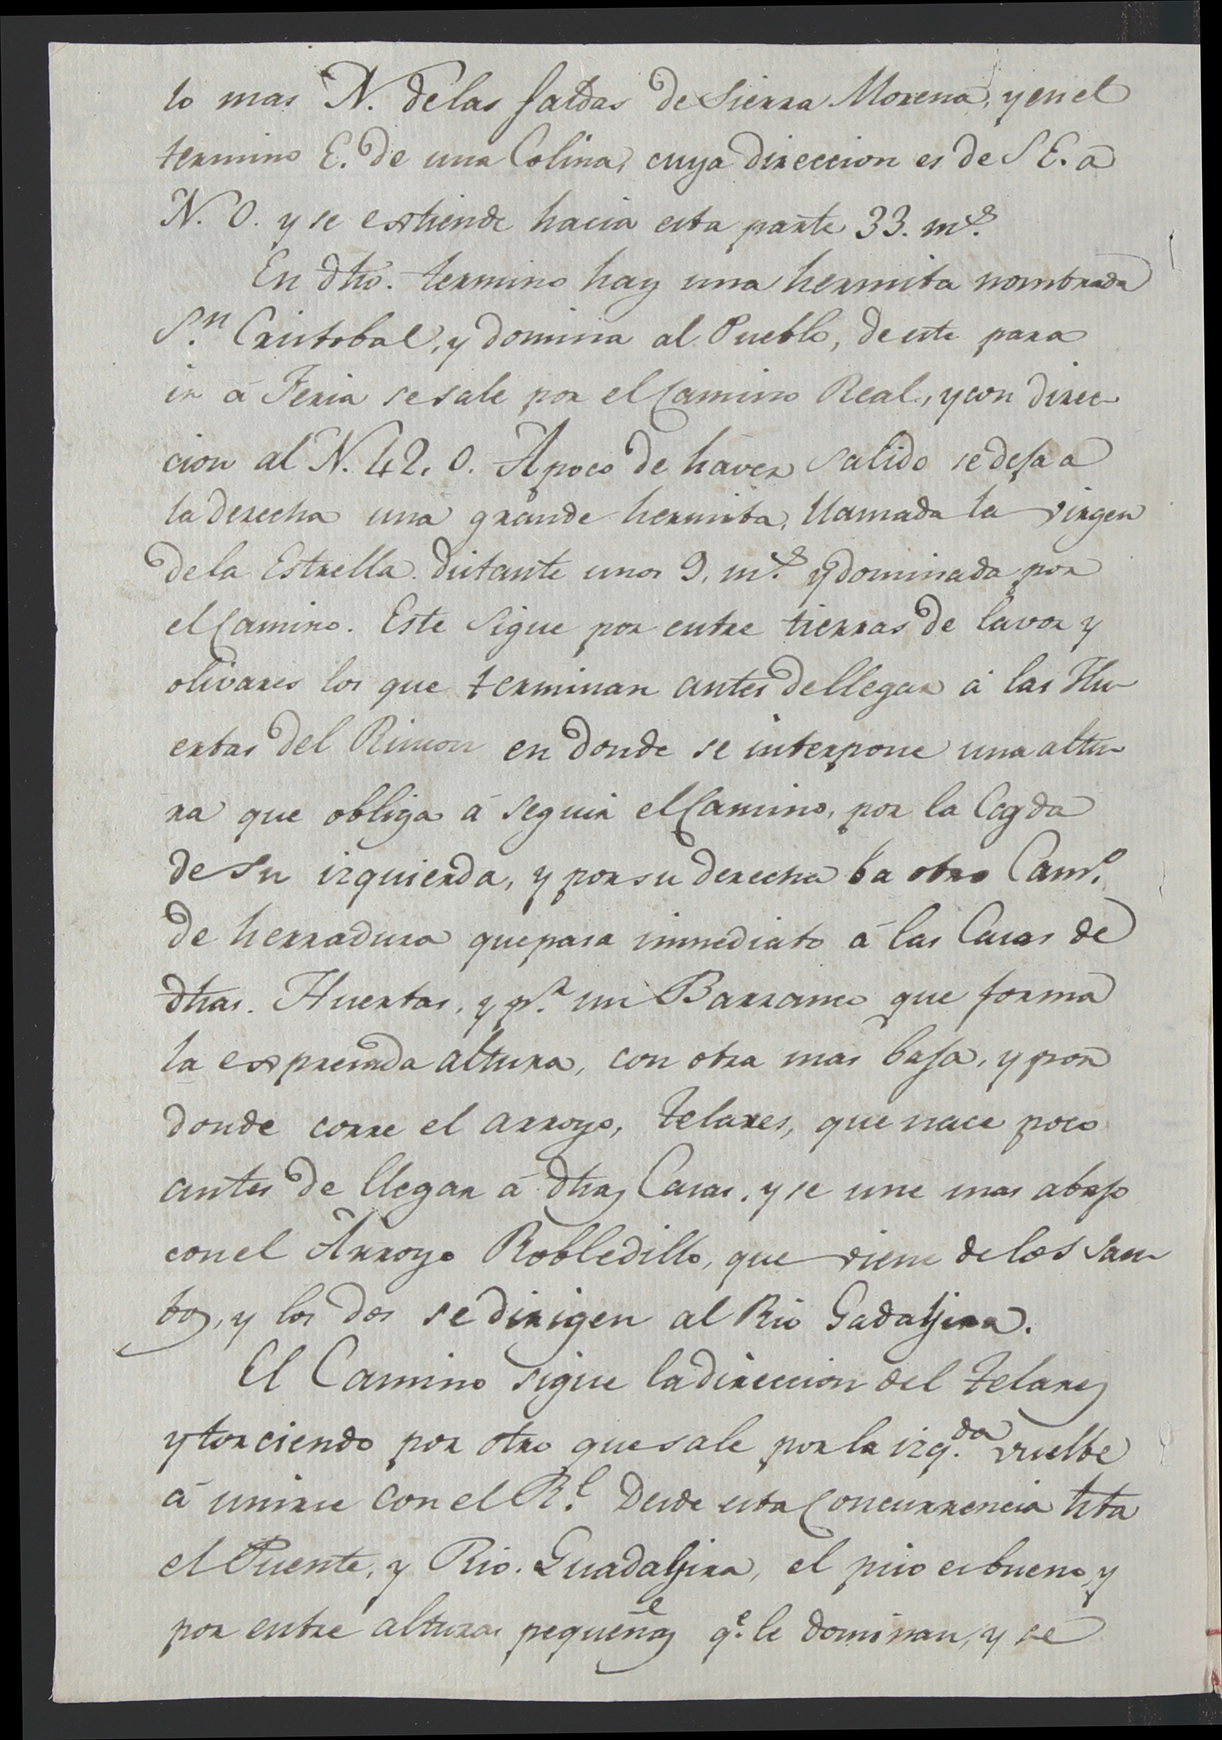 lo mas N. delas faldas de Sierra Morena, y en el
termino E. de una Colina, cuya direccion es de S E. a
N. O. y se extiende hacia esta parte 33. m.s
En dho. termino hay una hermita nombrada
S.n Cristobal, y domina al Pueblo, de este para
ir á Feria se sale por el Camino Real, y con direc-
cion al N. 42. O. A poco de haver salido se deja a
la derecha una grande hermita, llamada la virgen
de la Estrella. distante unos 9. m.s y dominada por
el Camino. Este sigue por entre tierras de lavor y
olivares los que terminan antes de llegar á las Hu-
ertas del Rincon en donde se interpone una altu-
ra que obliga á seguir el Camino, por la Cayda
de su izquierda, y por su derecha ba otro Cam.o
de herradura que pasa immediato á las Casas de
dhas. Huertas, y p.r un Barranco que forma
la expresada altura, con otra mas baja, y por
donde corre el arroyo, telares, que nace poco
antes de llegar á dhas Casas, y se une mas abajo
con el Arroyo Robledillo, que viene de los San-
tos, y los dos se dirigen al Rio Gadajira.
El Camino sigue la direccion del telares
y torciendo por otro que sale por la izq.da vuelbe
á unirse con el R.l Desde esta Concurrencia hta
el Puente, y Rio. Guadajira, el piso es bueno, y
por entre alturas pequeñas q.e le dominan, y se